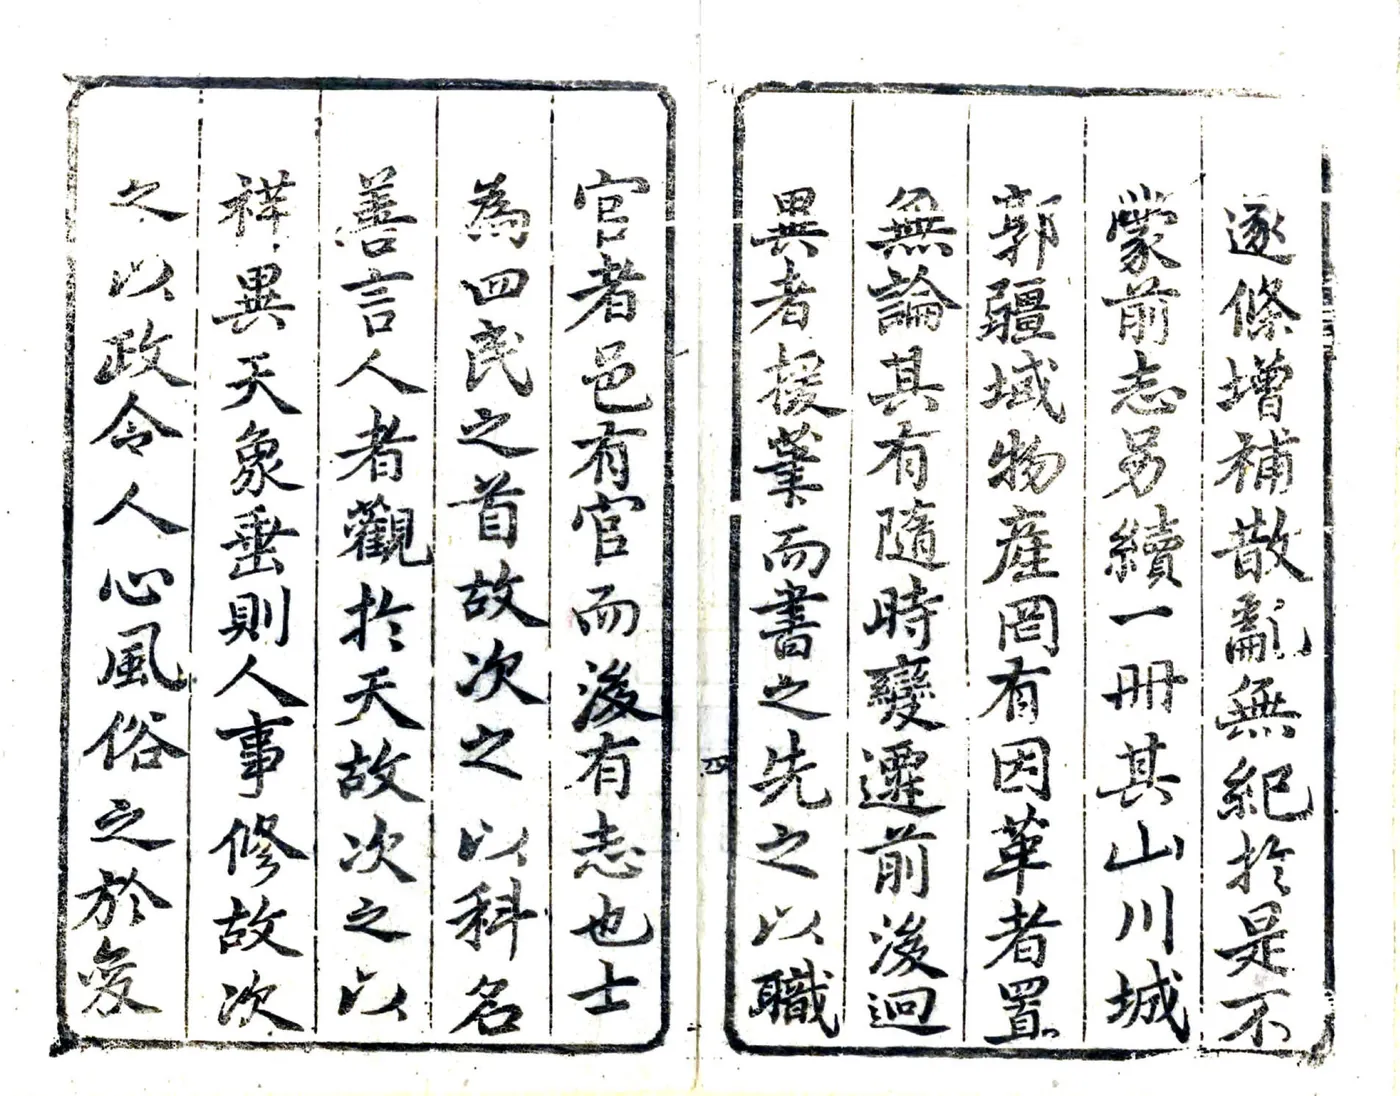 逐條增補散亂無紀扵是不
蒙前志另續一冊其山川城
郭疆域物產罔有因革者置
無論其有隨時變遷前後迥
異者援筆而書之先之以職
官者邑有官而後有志也士
為四民之首故次之以科名
善言人者觀扵天故次之以
祥異天象垂則人事修故次
之以政令人心風俗之於爰
四